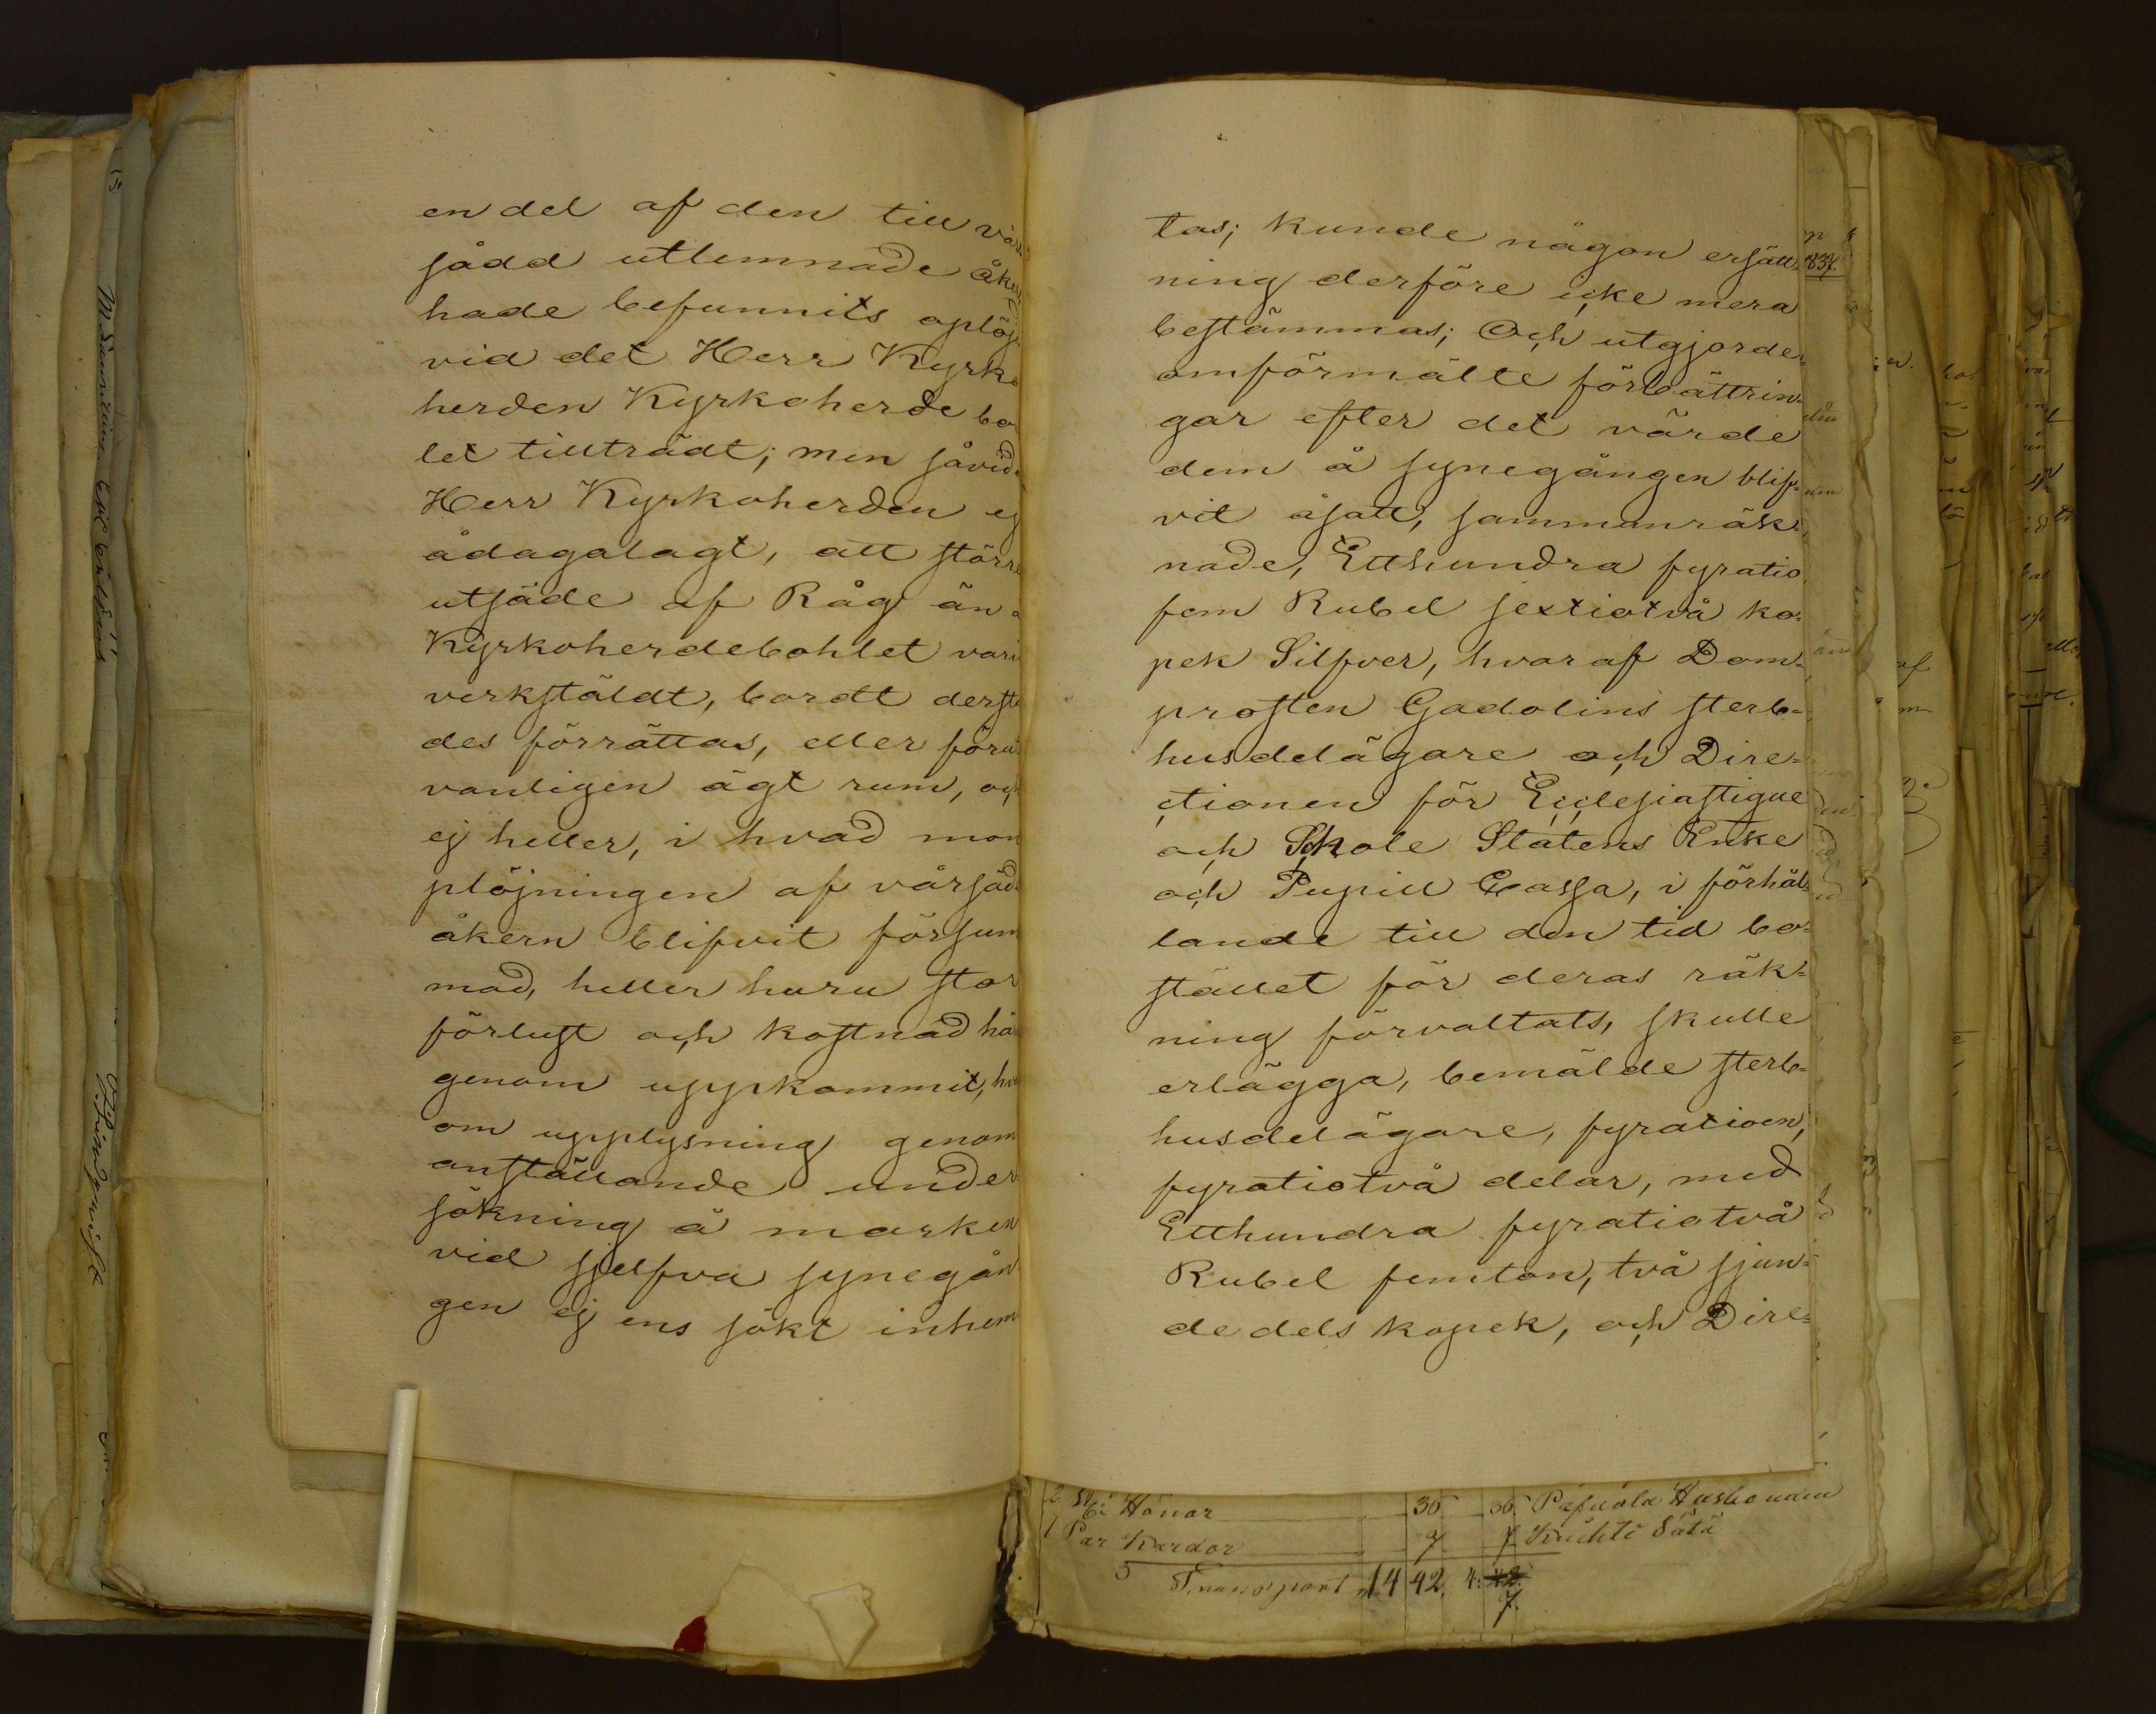 en del af den till vår
sådd utlemnade åker
hade befunnits oplöjd
vid det Herr Kyrko
herden Kyrkoherde bo
let tillträdt; men såvida
Herr Kyrkoherden ej
ådagalagt, att större
utsäde af Råg än å
Kyrkoherdebohlet varit
verkstäldt, bordt dersta
des förrättas, eller förut
vanligen ägt rum, och
ej heller, i hvad mon
plöjningen af vårsäds
åkern blifvit försum
mad, heller huru stor
förlust och kostnad här
genom uppkommit, hvar
om upplysning genom
anställande under
sökning å marken
vid sjelfva synegån
gen ej ens sökt inhem
tas; kunde någon ersätt=
ning derföre icke mera
bestämmas; Och utgjorde
omförmälte förbättrin=
gar efter det värde
dem å synegången blif=
vit åsatt, sammanräk=
nade, Etthundra fyratio
fem Rubel sextiotvå ko=
pek Silfver, hvaraf Dom=
prosten Gadolins sterb=
husdelägare och Dire=
ctionen för Ecclesiastique
och Schole Statens Enke
och Pupill Cassa, i förhål=
lande till den tid bo=
stället för deras räk=
ning förvaltats, skulle
erlägga, bemälde sterb=
husdelägare, fyratioen,
fyratiotvå delar, med
Etthundra fyratiotvå
Rubel femton, två sjun=
dedels kopek, och Dire=
837.
2 St: Hönor 36 36
1 Par Kardor 7 7
Transport 14 42. 4:
7.